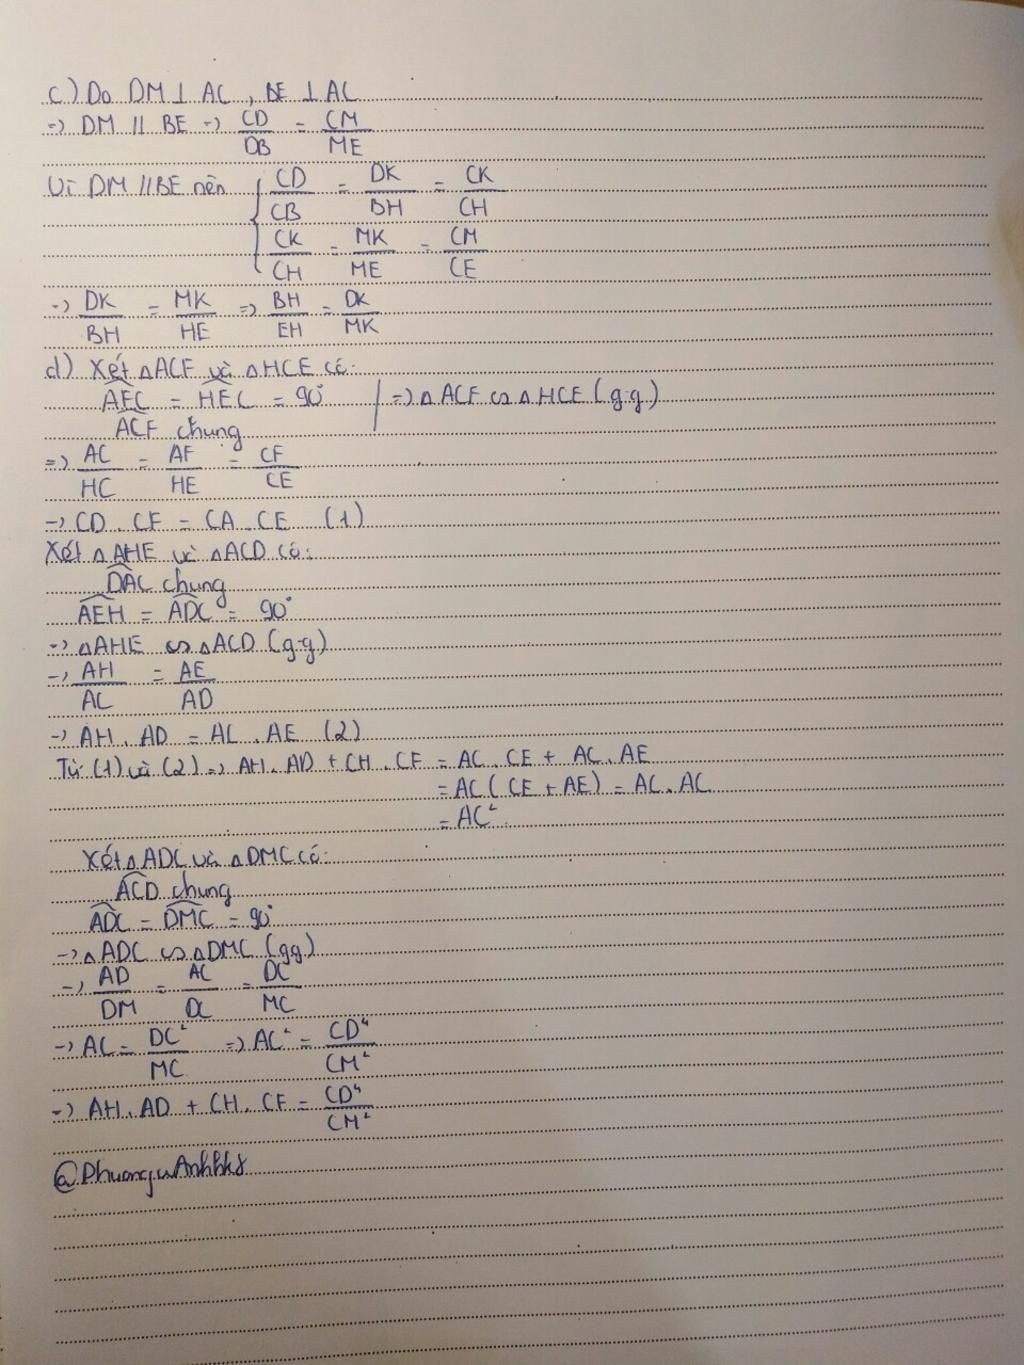 c) Do DM ⊥ AC, BE ⊥ AC
=> DM // BE => CD/DB = CM/ME
Vì DM // BE nên { CD/CB = DK/BH = CK/CH
CK/CH = MK/ME = CM/CE
=> DK/BH = MK/HE => BH/EH = DK/MK
d) Xét △ACF và △HCE có:
AFC = HEC = 90°
ACF chung | => △ACF ∽ △HCE (g.g)
=> AC/HC = AF/HE = CF/CE
=> CD . CF = CA . CE (1)
Xét △AHE và △ACD có:
DAC chung
AEH = ADC = 90°
=> △AHE ∽ △ACD (g.g)
=> AH/AC = AE/AD
=> AH . AD = AC . AE (2)
Từ (1) và (2) => AH . AD + CH . CF = AC . CE + AC . AE
= AC (CE + AE) = AC . AC
= AC²
Xét △ADC và △DMC có:
ACD chung
ADC = DMC = 90°
=> △ADC ∽ △DMC (gg)
=> AD/DM = AC/DC = DC/MC
=> AC = DC²/MC => AC² = CD⁴/CM²
=> AH . AD + CH . CF = CD⁴/CM²